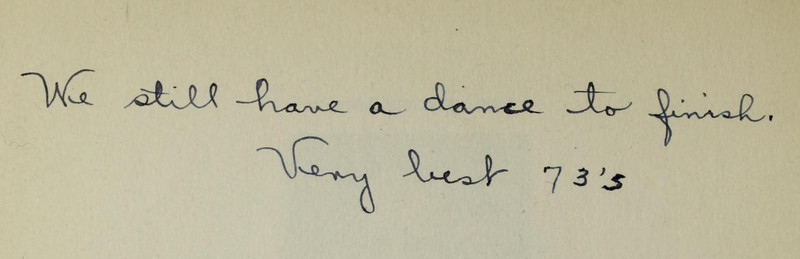 We still have a dance to finish.
Very best 73's